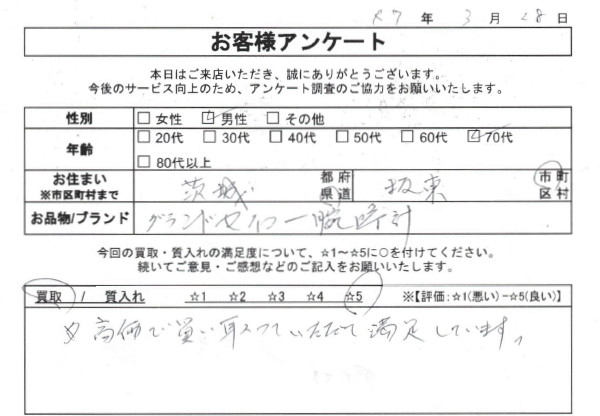 R7 年 3 月 28 日
お客様アンケート
本日はご来店いただき、誠にありがとうございます。
今後のサービス向上のため、アンケート調査のご協力をお願いいたします。
性別 □ 女性 ☑ 男性 □ その他
年齢 □ 20代 □ 30代 □ 40代 □ 50代 □ 60代 ☑ 70代
□ 80代以上
お住まい 茨城 都 府 坂東 市 町
※市区町村まで 県 道 区 村
お品物/ブランド グランドセイコー腕時計
今回の買取・質入れの満足度について、☆1～☆5に○を付けてください。
続いてご意見・ご感想などのご記入をお願いいたします。
買取 / 質入れ ☆1 ☆2 ☆3 ☆4 ☆5 ※【評価:☆1(悪い)－☆5(良い)】
高価で買い取っていただて満足しています。